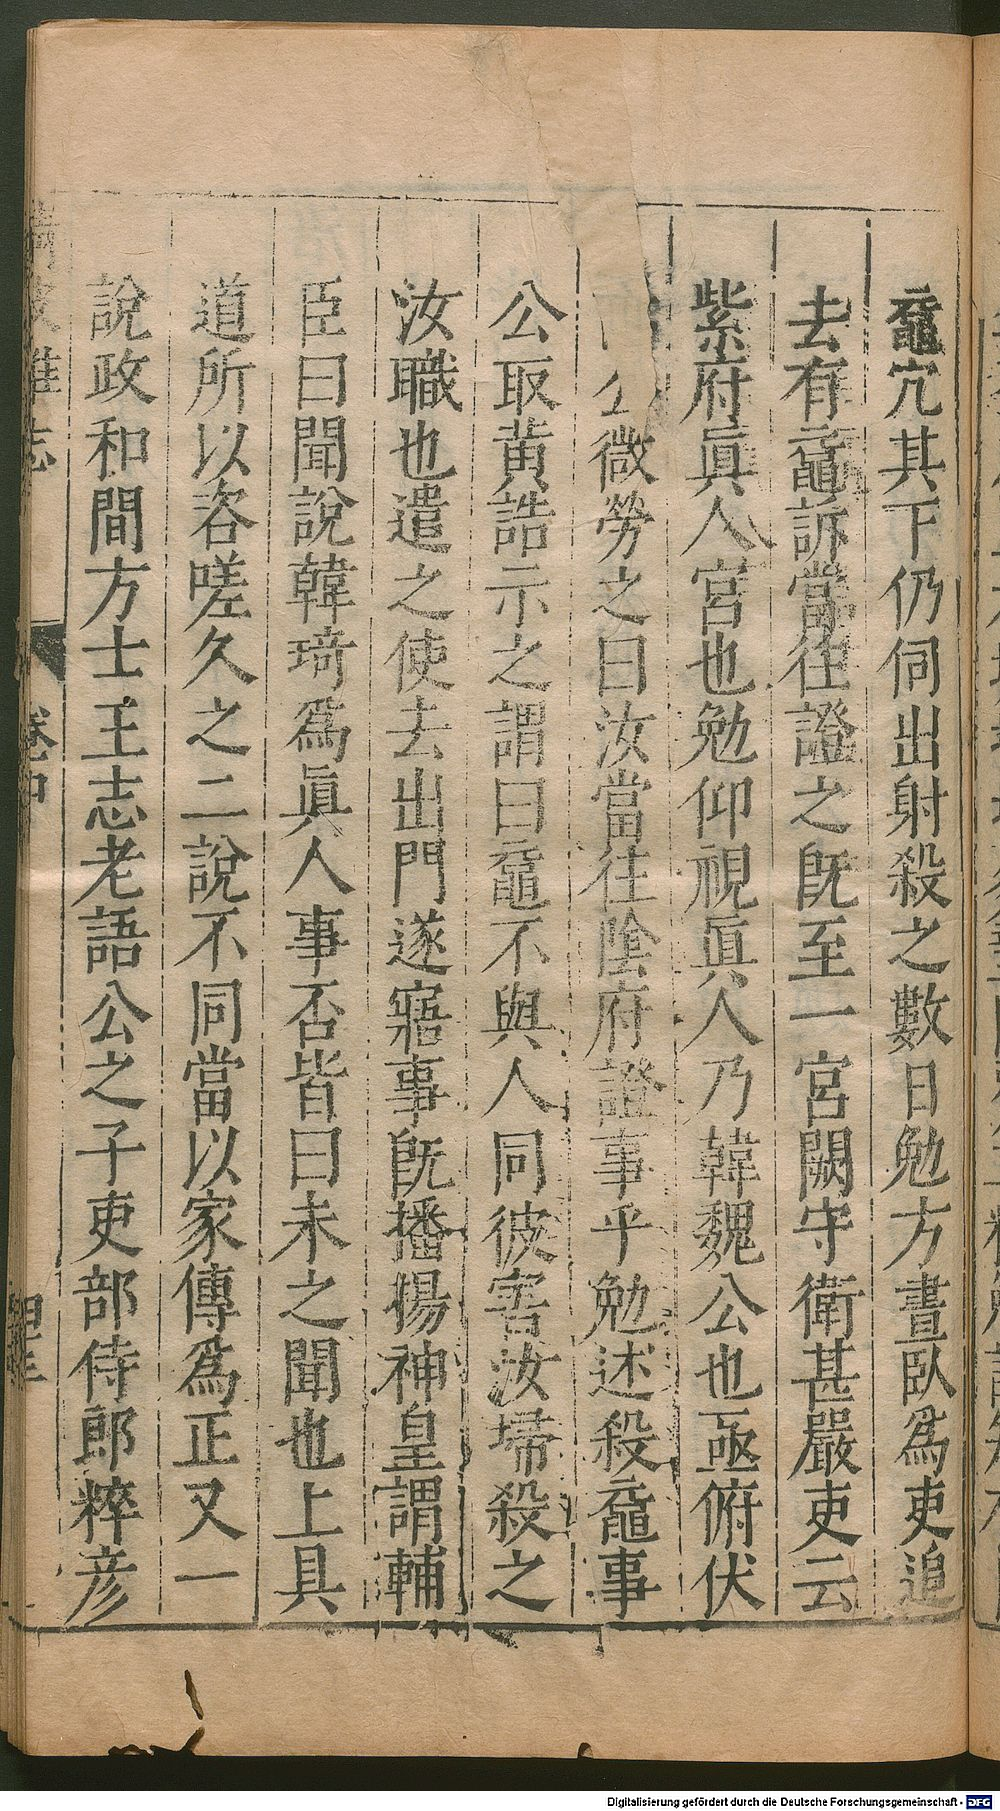 黿穴其下仍伺出射殺之數日勉方晝臥爲吏追
去有黿訴當往證之旣至一宮闕守衛甚嚴吏云
紫府眞人宮也勉仰視眞人乃韓魏公也亟俯伏
公微勞之曰汝當往陰府證事乎勉述殺黿事
公取黄誥示之謂曰黿不與人同彼害汝埽殺之
汝職也遣之使去出門遂寤事旣播揚神皇謂輔
臣曰聞說韓琦爲眞人事否皆曰未之聞也上具
道所以咨嗟久之二說不同當以家傳爲正又一
說政和間方士王志老語公之子吏部侍郎粹彦
清波雜志
卷中
Digitalisierung gefördert durch die Deutsche Forschungsgemeinschaft - DFG